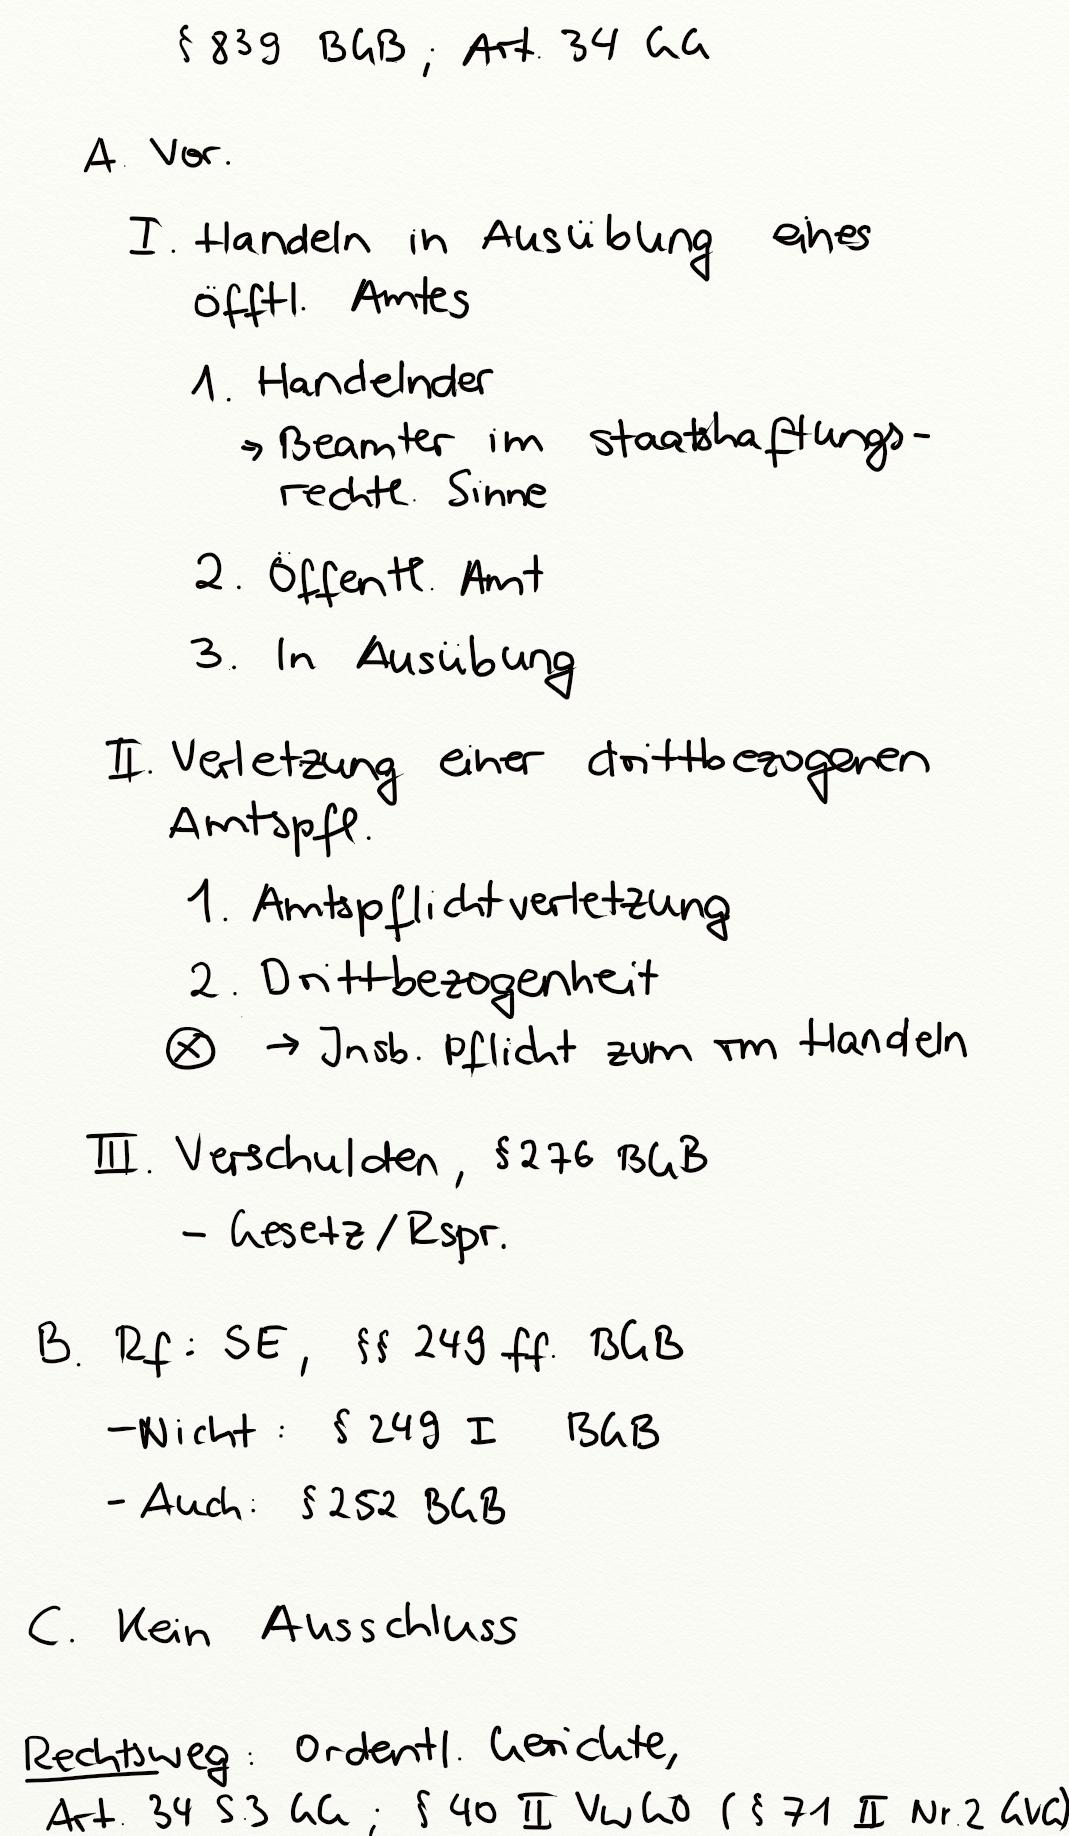 § 839 BGB; Art. 34 GG
A. Vor.
I. Handeln in Ausübung eines
öfftl. Amtes
1. Handelnder
→ Beamter im staatshaftungs-
rechtl. Sinne
2. Öffentl. Amt
3. In Ausübung
II. Verletzung einer drittbezogenen
Amtspfl.
1. Amtspflichtverletzung
2. Drittbezogenheit
ⓧ → Insb. Pflicht zum rm Handeln
III. Verschulden, § 276 BGB
- Gesetz/Rspr.
B. Rf: SE, §§ 249 ff. BGB
- Nicht: § 249 I BGB
- Auch: § 252 BGB
C. Kein Ausschluss
Rechtsweg: Ordentl. Gerichte,
Art. 34 S.3 GG; § 40 II VwGO (§ 71 II Nr. 2 GVG)